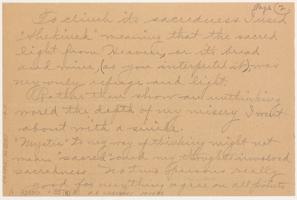 Page 2
To clinch its sacredness I used
"Shekinah" meaning that the sacred
light from Heaven, or its bread
and wine, (as you interpret it), was
my only refuge and light.
Rather than show an unthinking
world the depth of my misery I went
about with a smile.
"Mystic" to my way of thinking might not
mean "sacred" and my thoughts involved
sacredness. No two persons really
good for anything agree on all points